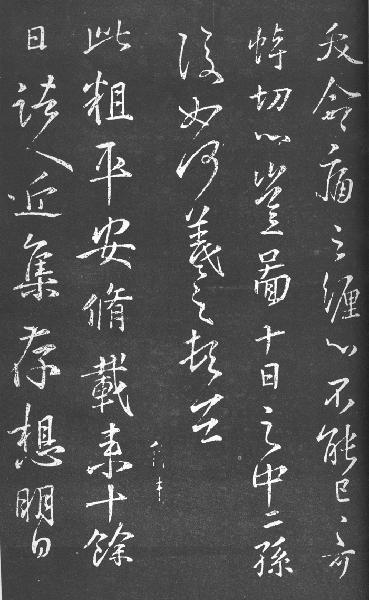 夭命痛之纏心不能已〻可
悼切心豈圖十日之中二孫
復如何羲之頓首
此粗平安脩載來十餘
日諸人近集存想明日